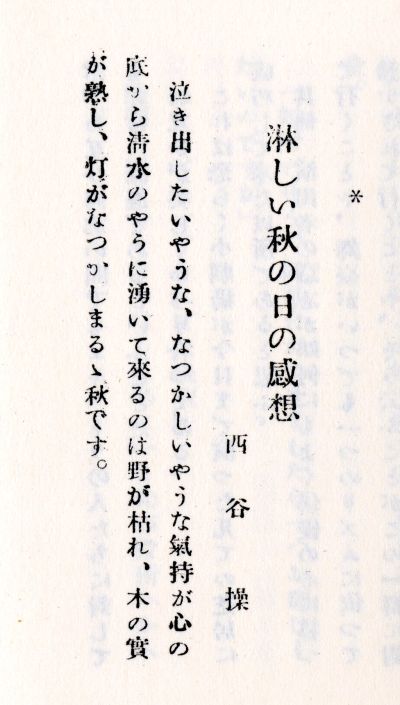 *
淋しい秋の日の感想
西谷操
泣き出したいやうな、なつかしいやうな氣持が心の
底から淸水のやうに湧いて來るのは野が枯れ、木の實
が熟し、灯がなつかしまるゝ秋です。